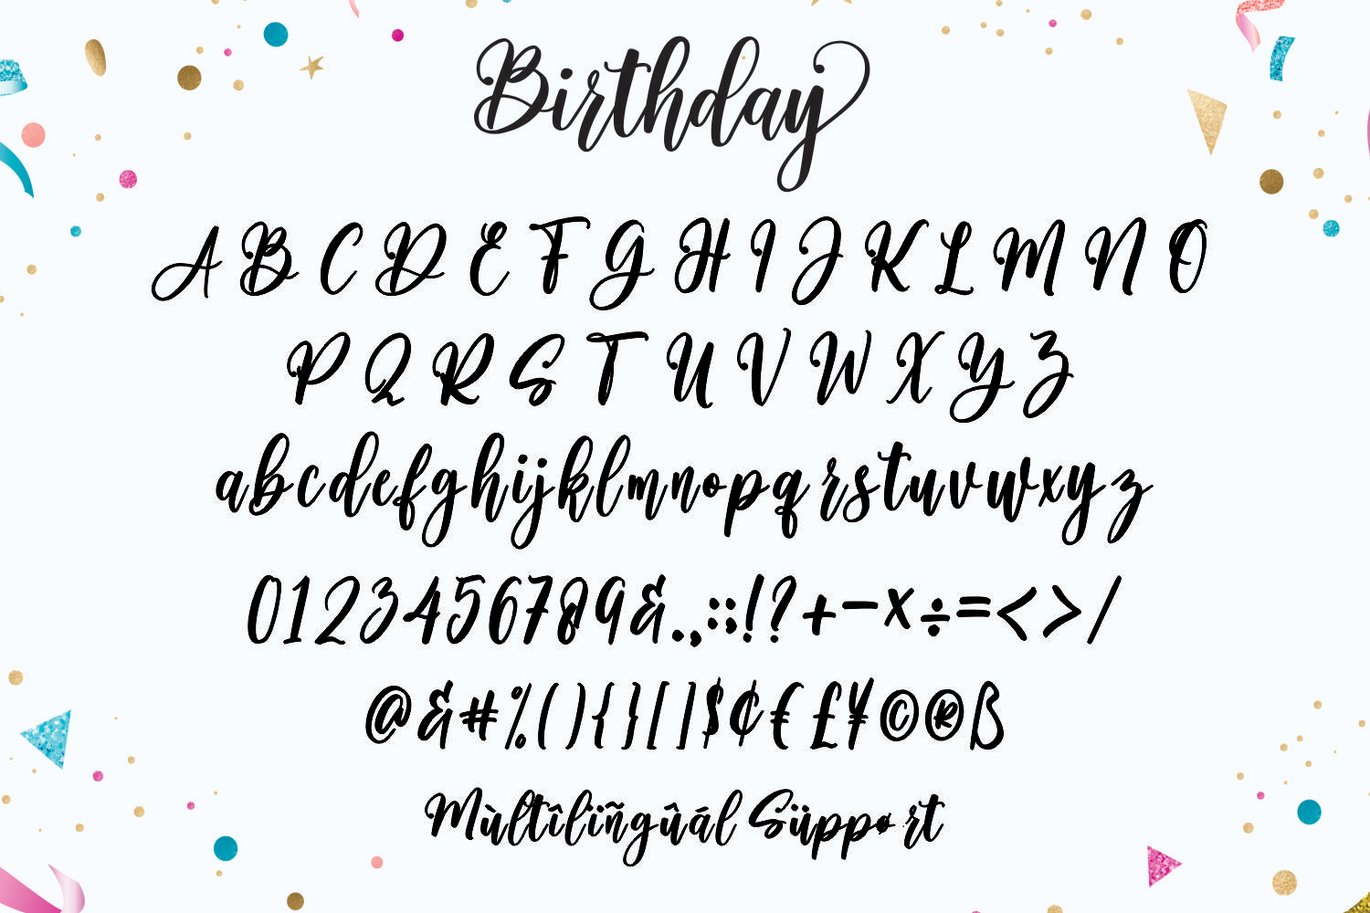 Birthday
A B C D E F G H I J K L M N O
P Q R S T U V W X Y Z
abcdefghijklmnopqrstuvwxyz
0123456789&.,:;!?+-×÷=<>/
@&#%(){}[]$¢€£¥©®ß
Mùltîlïñgûál Süppørt